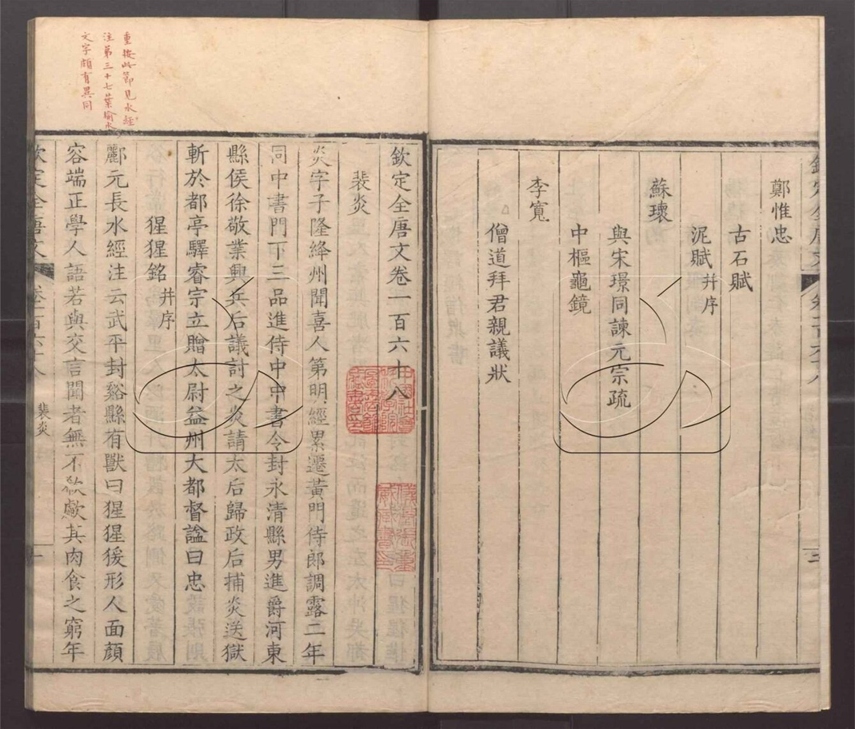 鄭惟忠
古石賦
泥賦并序
蘇瓌
與宋璟同諫元宗疏
中樞龜鏡
李寬
僧道拜君親議狀
欽定全唐文卷一百六十八
裴炎
炎字子隆絳州聞喜人第明經累遷黃門侍郎調露二年
同中書門下三品進侍中中書令封永清縣男進爵河東
縣侯徐敬業興兵后議討之炎請太后歸政后捕炎送獄
斬於都亭驛睿宗立贈太尉益州大都督諡曰忠
猩猩銘并序
酈元長水經注云武平封谿縣有獸曰猩猩猨形人面顏
容端正學人語若與交言聞者無不欷歔其肉食之窮年
欽定全唐文
卷一百六十八
裴炎
一
文字頗有異同